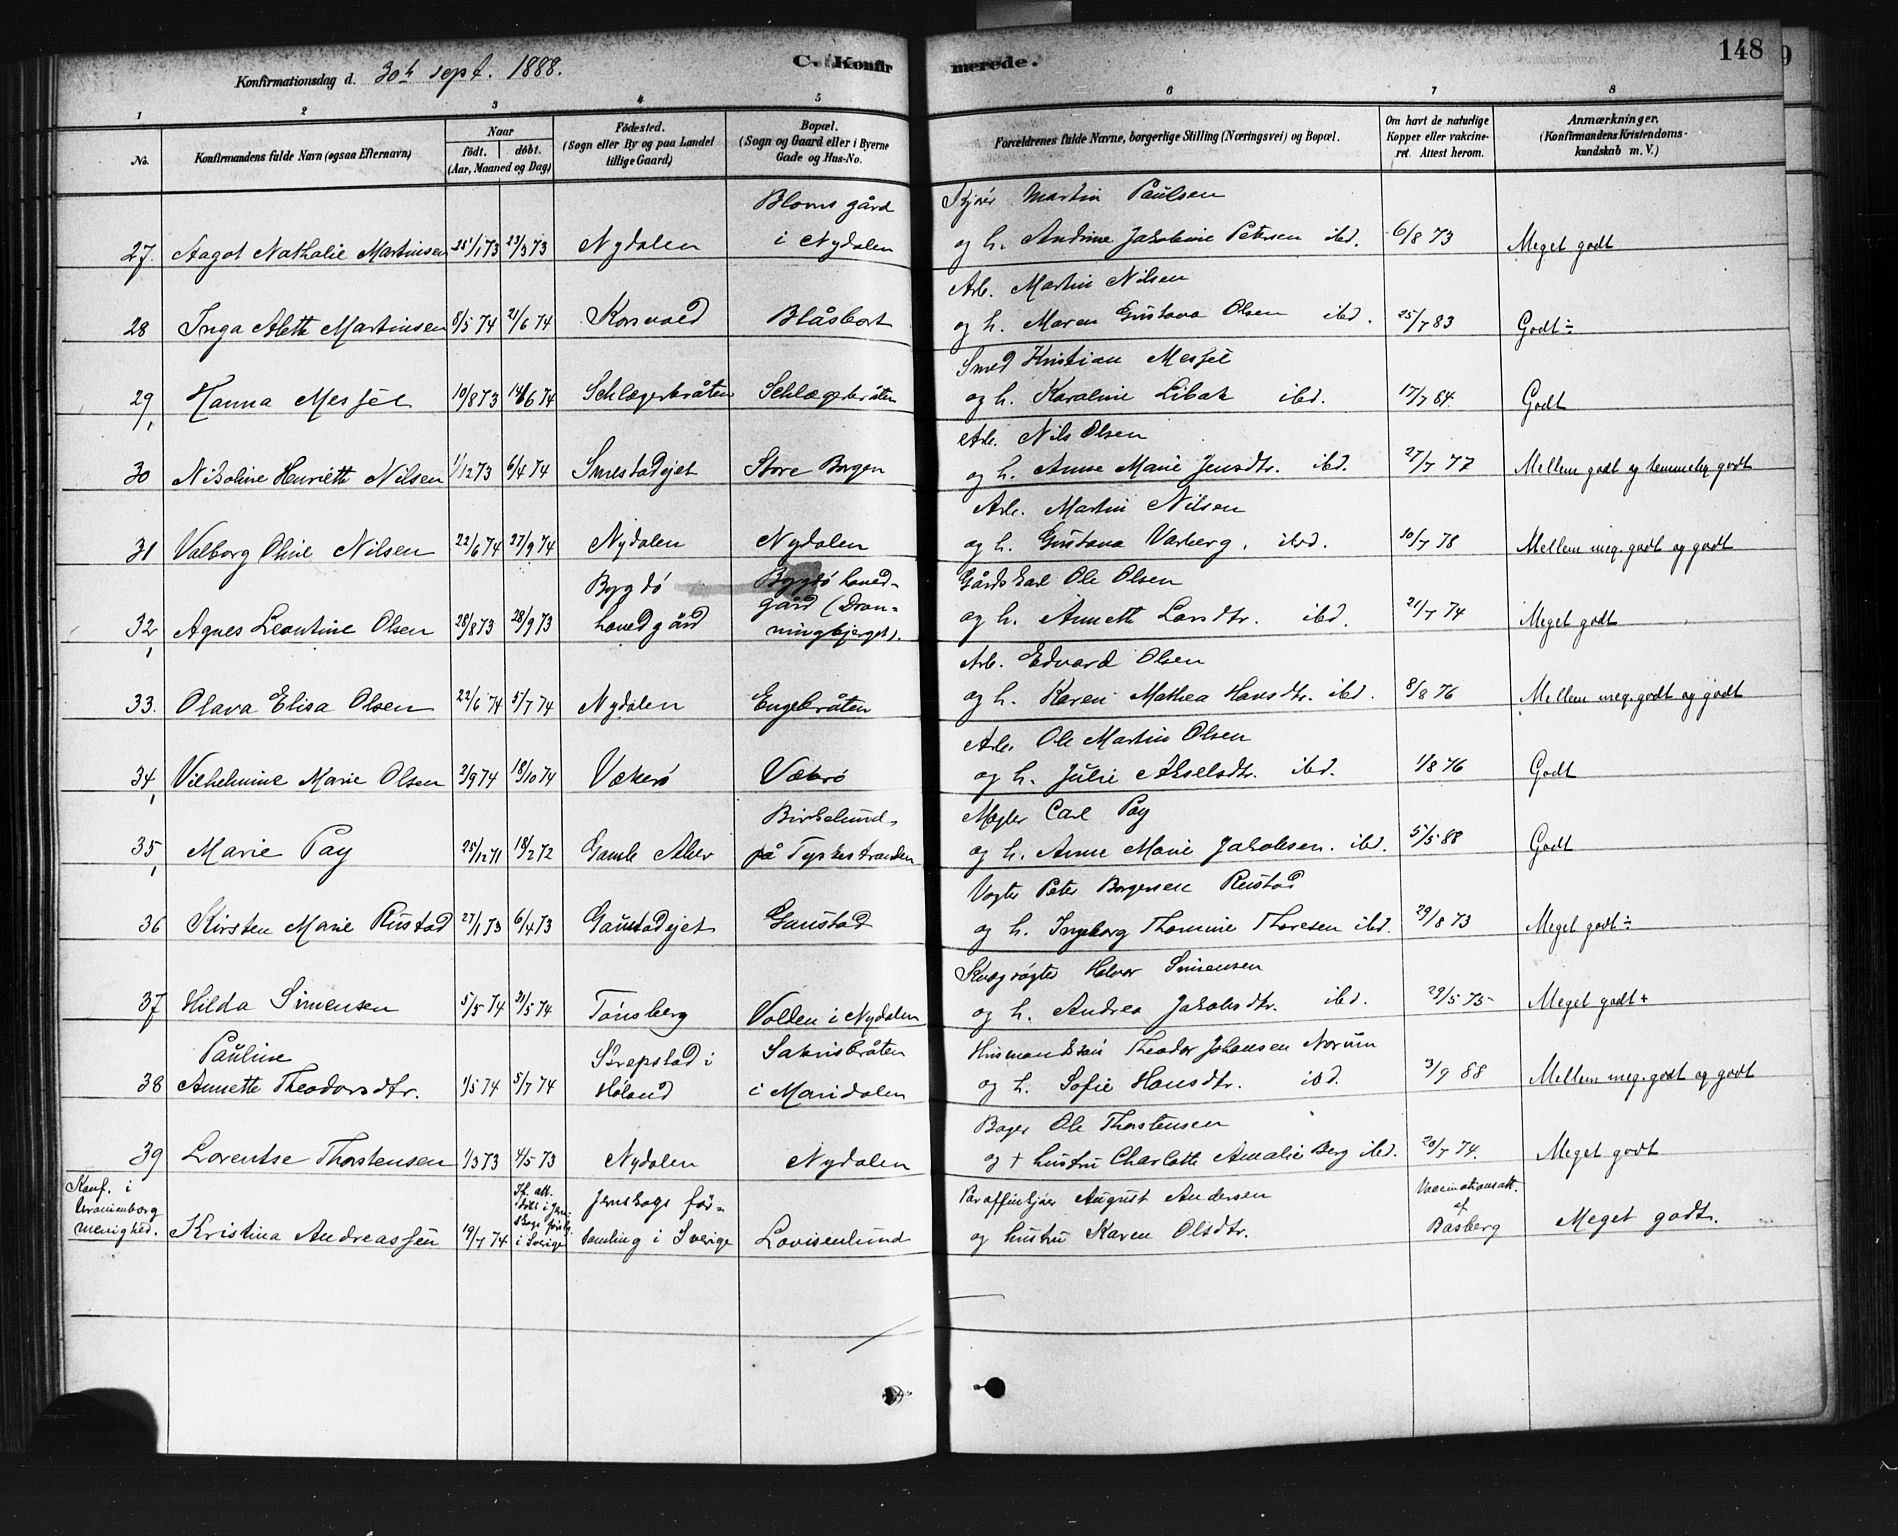 Konfirmationsdag d. 30te sept. 1888.
C. Konfirmerede.
148
9
1 2 3 4 5 6 7 8
No.
Konfirmandens fulde Navn (ogsaa Efternavn)
Naar
født. døbt.
(Aar, Maaned og Dag)
Fødested.
(Sogn eller By og paa Landet
tillige Gaard)
Bopæl.
(Sogn og Gaard eller i Byerne
Gade og Hus-No.
Forældrenes fulde Navne, borgerlige Stilling (Næringsvei) og Bopæl.
Om havt de naturlige
Kopper eller vakcine-
ret. Attest herom.
Anmærkninger.
(Konfirmandens Kristendoms-
kundskab m. V.)
Bloms gård Kjører Martin Paulsen
27. Aagot Nathalie Martinsen 28/1 73 23/3 73 Nydalen i Nydalen og h. Andrine Jakobine Petersen ibd. 6/8 73 Meget godt
Arb. Martin Nilsen
28 Inga Aleth Martinsen 8/5 74 21/6 74 Korsvold Blåsbort og h. Maren Gustava Olsen ibd. 25/7 83 Godt ÷
Smed Kristian Messel
29, Hanna Messel 10/8 73 14/6 74 Schlægerbråten Schlægerbråten og h. Karoline Libak ibd. 17/7 84. Godt
Arb. Nils Olsen
30 Nikoline Henriette Nilsen 1/12 73 6/4 74 Smestadejet Store Borgen og h. Anne Marie Jensdtr. ibd. 27/7 77 Mellem godt og temmelig godt
Arb. Martin Nilsen
31 Valborg Oline Nilsen 22/6 74 27/9 74 Nydalen Nydalen og h. Gustava Varberg. ibd. 10/7 78 Mellem meg. godt og godt
Bygdø Bygdø hoved- Gårdskarl Ole Olsen
32, Agnes Leontine Olsen 28/8 73 28/9 73 hovedgård gård (Dron-
ningbjerget). og h. Annette Larsdtr. ibd. 21/7 74 Meget godt
Arb. Edvard Olsen
33. Olava Elisa Olsen 22/6 74 5/7 74 Nydalen Engebråten og h. Karen Mathea Hansdtr. ibd. 8/8 76 Mellem meg. godt og godt
Arb. Ole Martin Olsen
34, Vilhelmine Marie Olsen 2/9 74 18/10 74 Vækerø Vækerø og h. Julie Akselsdtr. ibd. 1/8 76 Godt
Birkelund Mægler Carl Pay
35, Marie Pay 25/12 71 18/2 72 Gamle Aker på Tyskestranden og h. Anne Marie Jakobsen. ibd. 5/5 88 Godt
Vogter Peter Borgersen Rustad
36 Kirsten Marie Rustad 27/1 73 6/4 73 Gaustadejet Gaustad og h. Ingeborg Thomine Thoresen ibd. 29/8 73 Meget godt ÷
Kvægrøgter Halvor Simensen
37 Hilda Simensen 5/5 74 31/5 74 Tønsberg Volden i Nydalen og h. Andrea Jakobsdtr. ibd. 29/5 75 Meget godt +
Pauline Strepstad i Sakrisbråten Husmandssøn Theodor Johansen Norum
38 Annette Theodorsdtr. 1/5 74 5/7 74 Høland i Maridalen og h. Sofie Hansdtr. ibd. 3/9 88 Mellem meg. godt og godt
Bager Ole Thorstensen
39 Lorentse Thorstensen 1/3 73 4/5 73 Nydalen Nydalen og + hustru Charlotte Amalie Berg ibd. 20/7 74. Meget godt
Konf. i
Uranienborg
menighed. Kristina Andreassen 19/7 74 If. att.
i Sverige Jernskogs för-
samling i Sverige Lovisenlund Paraffinkjører August Andersen
og hustru Karen Olsdtr. Vaccinationsatt.
af
Basberg Meget godt.